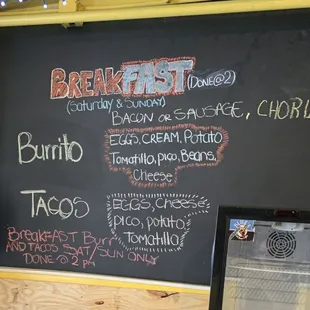 BREAKFAST (DONE@2)
(Saturday & SUNDAY)
BACON OR SAUSAGE, CHORI
Burrito
EGGS, CREAM, POTATO
Tomatillo, pico, Beans,
Cheese
TACOS
EGGS, Cheese,
pico, potato,
Tomatillo
BREAKFAST Burr
AND TACOS SAT/SUN ONLY
DONE @ 2 pm